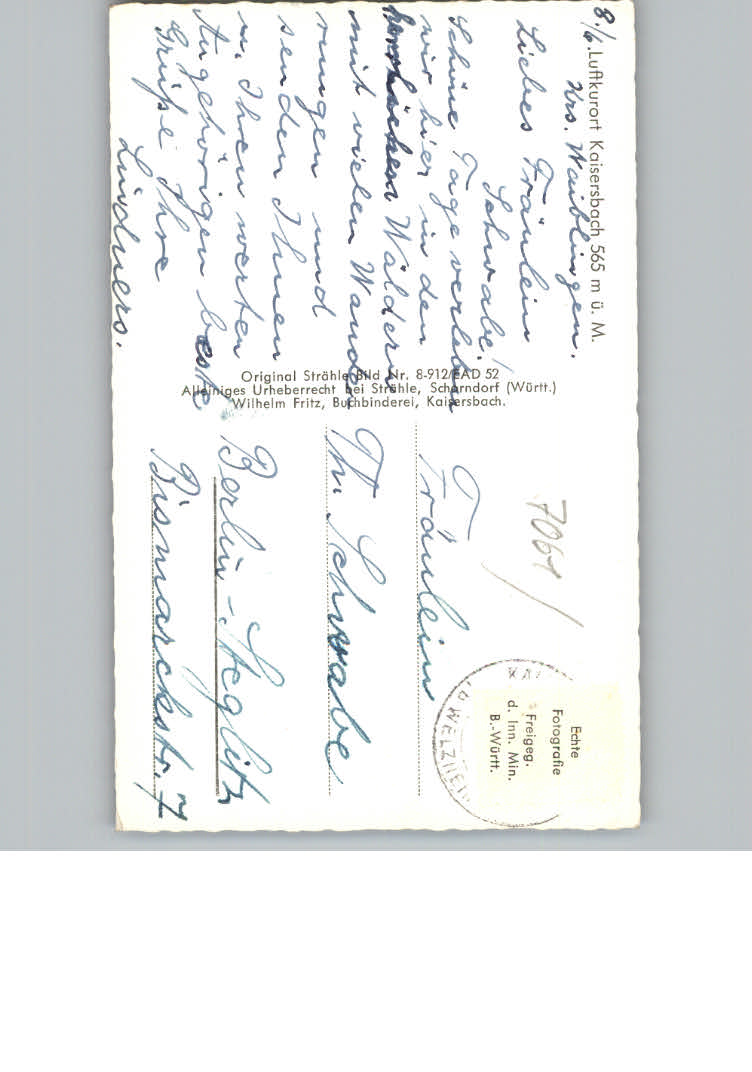 8./6. Luftkurort Kaisersbach 565 m ü. M.
Krs. Waiblingen.
Liebes Fräulein
Schwabe!
Schöne Tage verleben
wir hier in den
herrlichen Wäldern
mit vielen Wande-
rungen und
senden Ihnen
u. Ihren werten
Angehörigen beste
Grüße Ihre
Lindners.
Original Strähle Bild Nr. 8-912/EAD 52
Alleiniges Urheberrecht bei Strähle, Schorndorf (Württ.)
Wilhelm Fritz, Buchbinderei, Kaisersbach.
7061
WELZHEIM
Echte
Fotografie
Freigeg.
d. Inn. Min.
B.-Württ.
Fräulein
Th. Schwabe
Berlin-Steglitz
Bismarckstr. 7